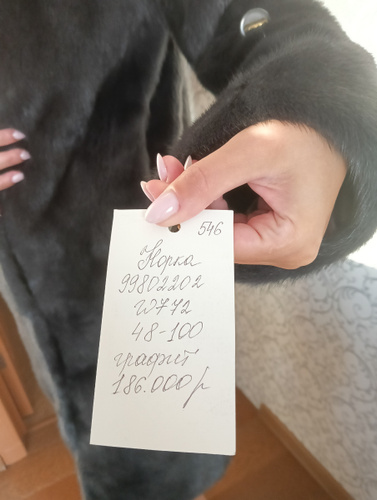 546
Норка
99802202
W772
48-100
графит
186.000р